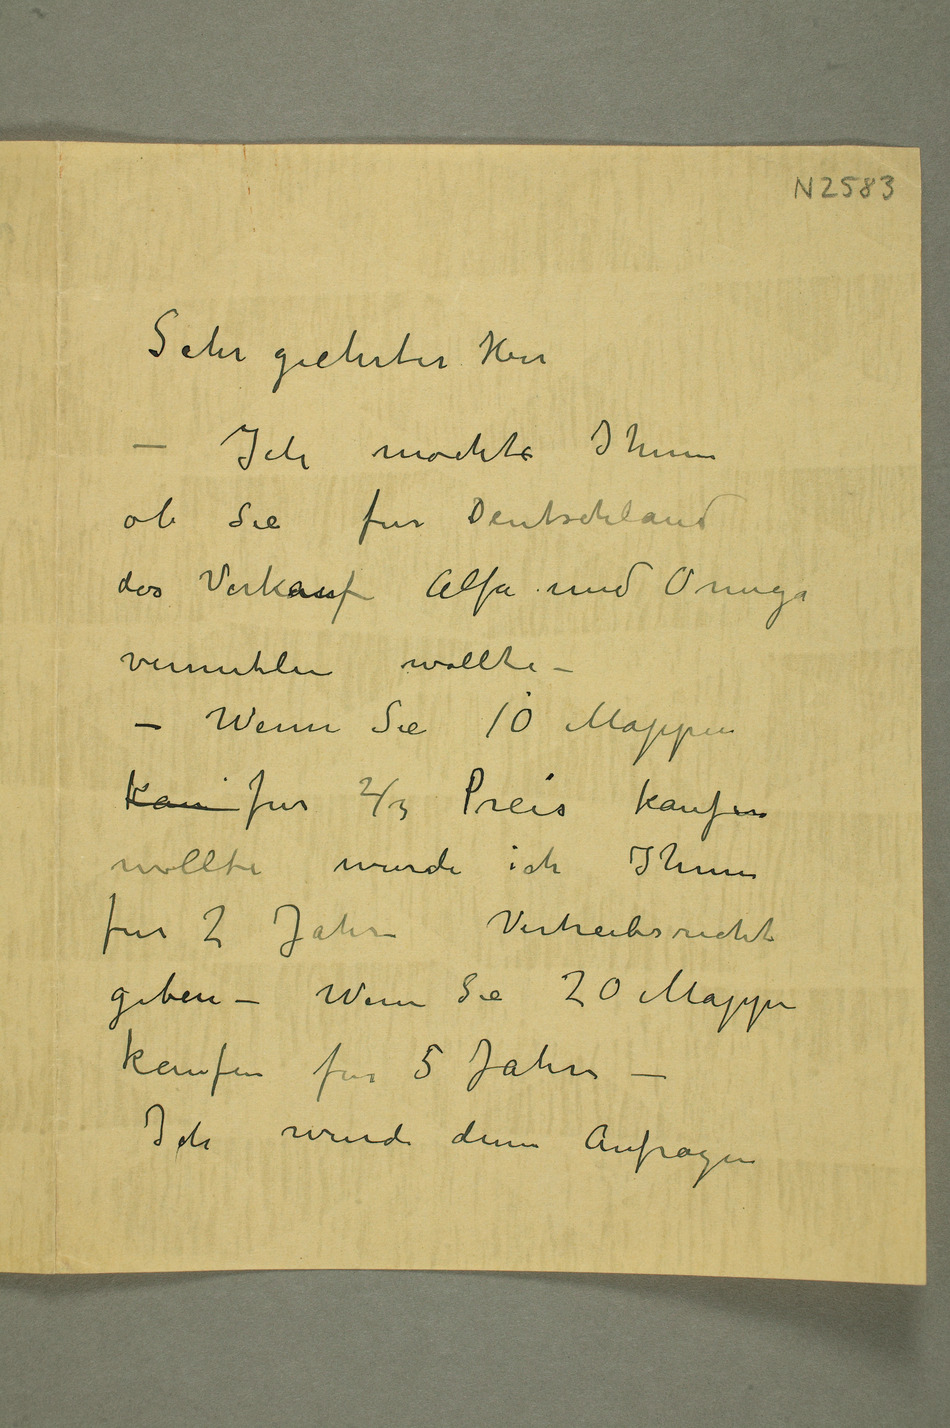 N2583
Sehr geehrter Herr
— Ich mochte Ihnen
ob Sie fur Deutschland
das Verkauf Alfa und Omega
vermitlen wollte –
– Wenn Sie 10 Mappen
kau fur 2/3 Preis kaufen
wollte wurde ich Ihnen
fur 2 Jahre Vertreibsrecht
geben – Wenn Sie 20 Mappen
kaufen fur 5 Jahre –
Ich wurde denn Anfragen